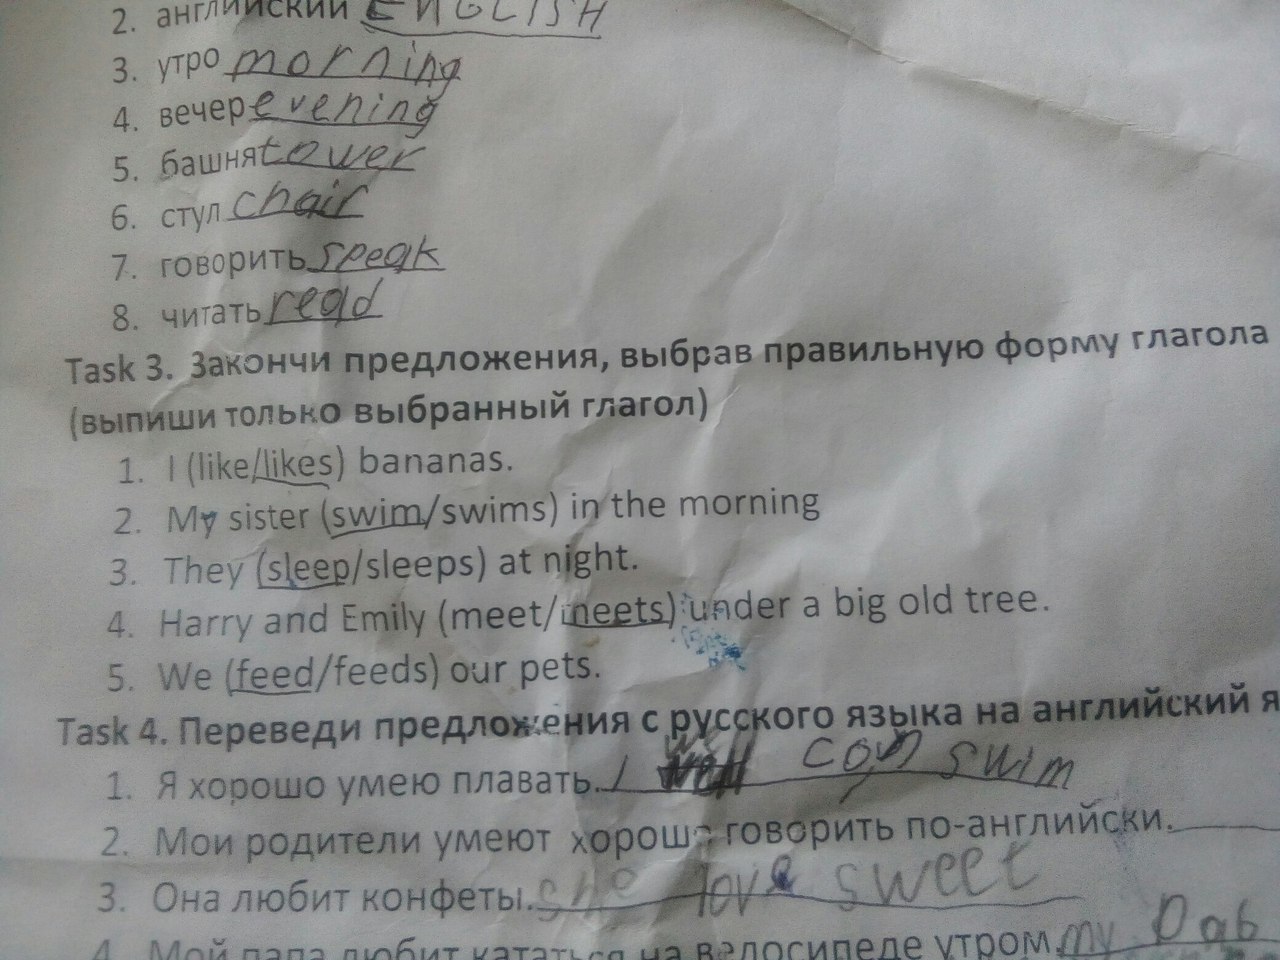 2. английский ENGLISH
3. утро morning
4. вечер evening
5. башня tower
6. стул chair
7. говорить speak
8. читать read
Task 3. Закончи предложения, выбрав правильную форму глагола
(выпиши только выбранный глагол)
1. I (like/likes) bananas.
2. My sister (swim/swims) in the morning
3. They (sleep/sleeps) at night.
4. Harry and Emily (meet/meets) under a big old tree.
5. We (feed/feeds) our pets.
Task 4. Переведи предложения с русского языка на английский я
1. Я хорошо умею плавать. I can swim
2. Мои родители умеют хорошо говорить по-английски.
3. Она любит конфеты. she love sweet
4. Мой папа любит кататься на велосипеде утром. my Dab